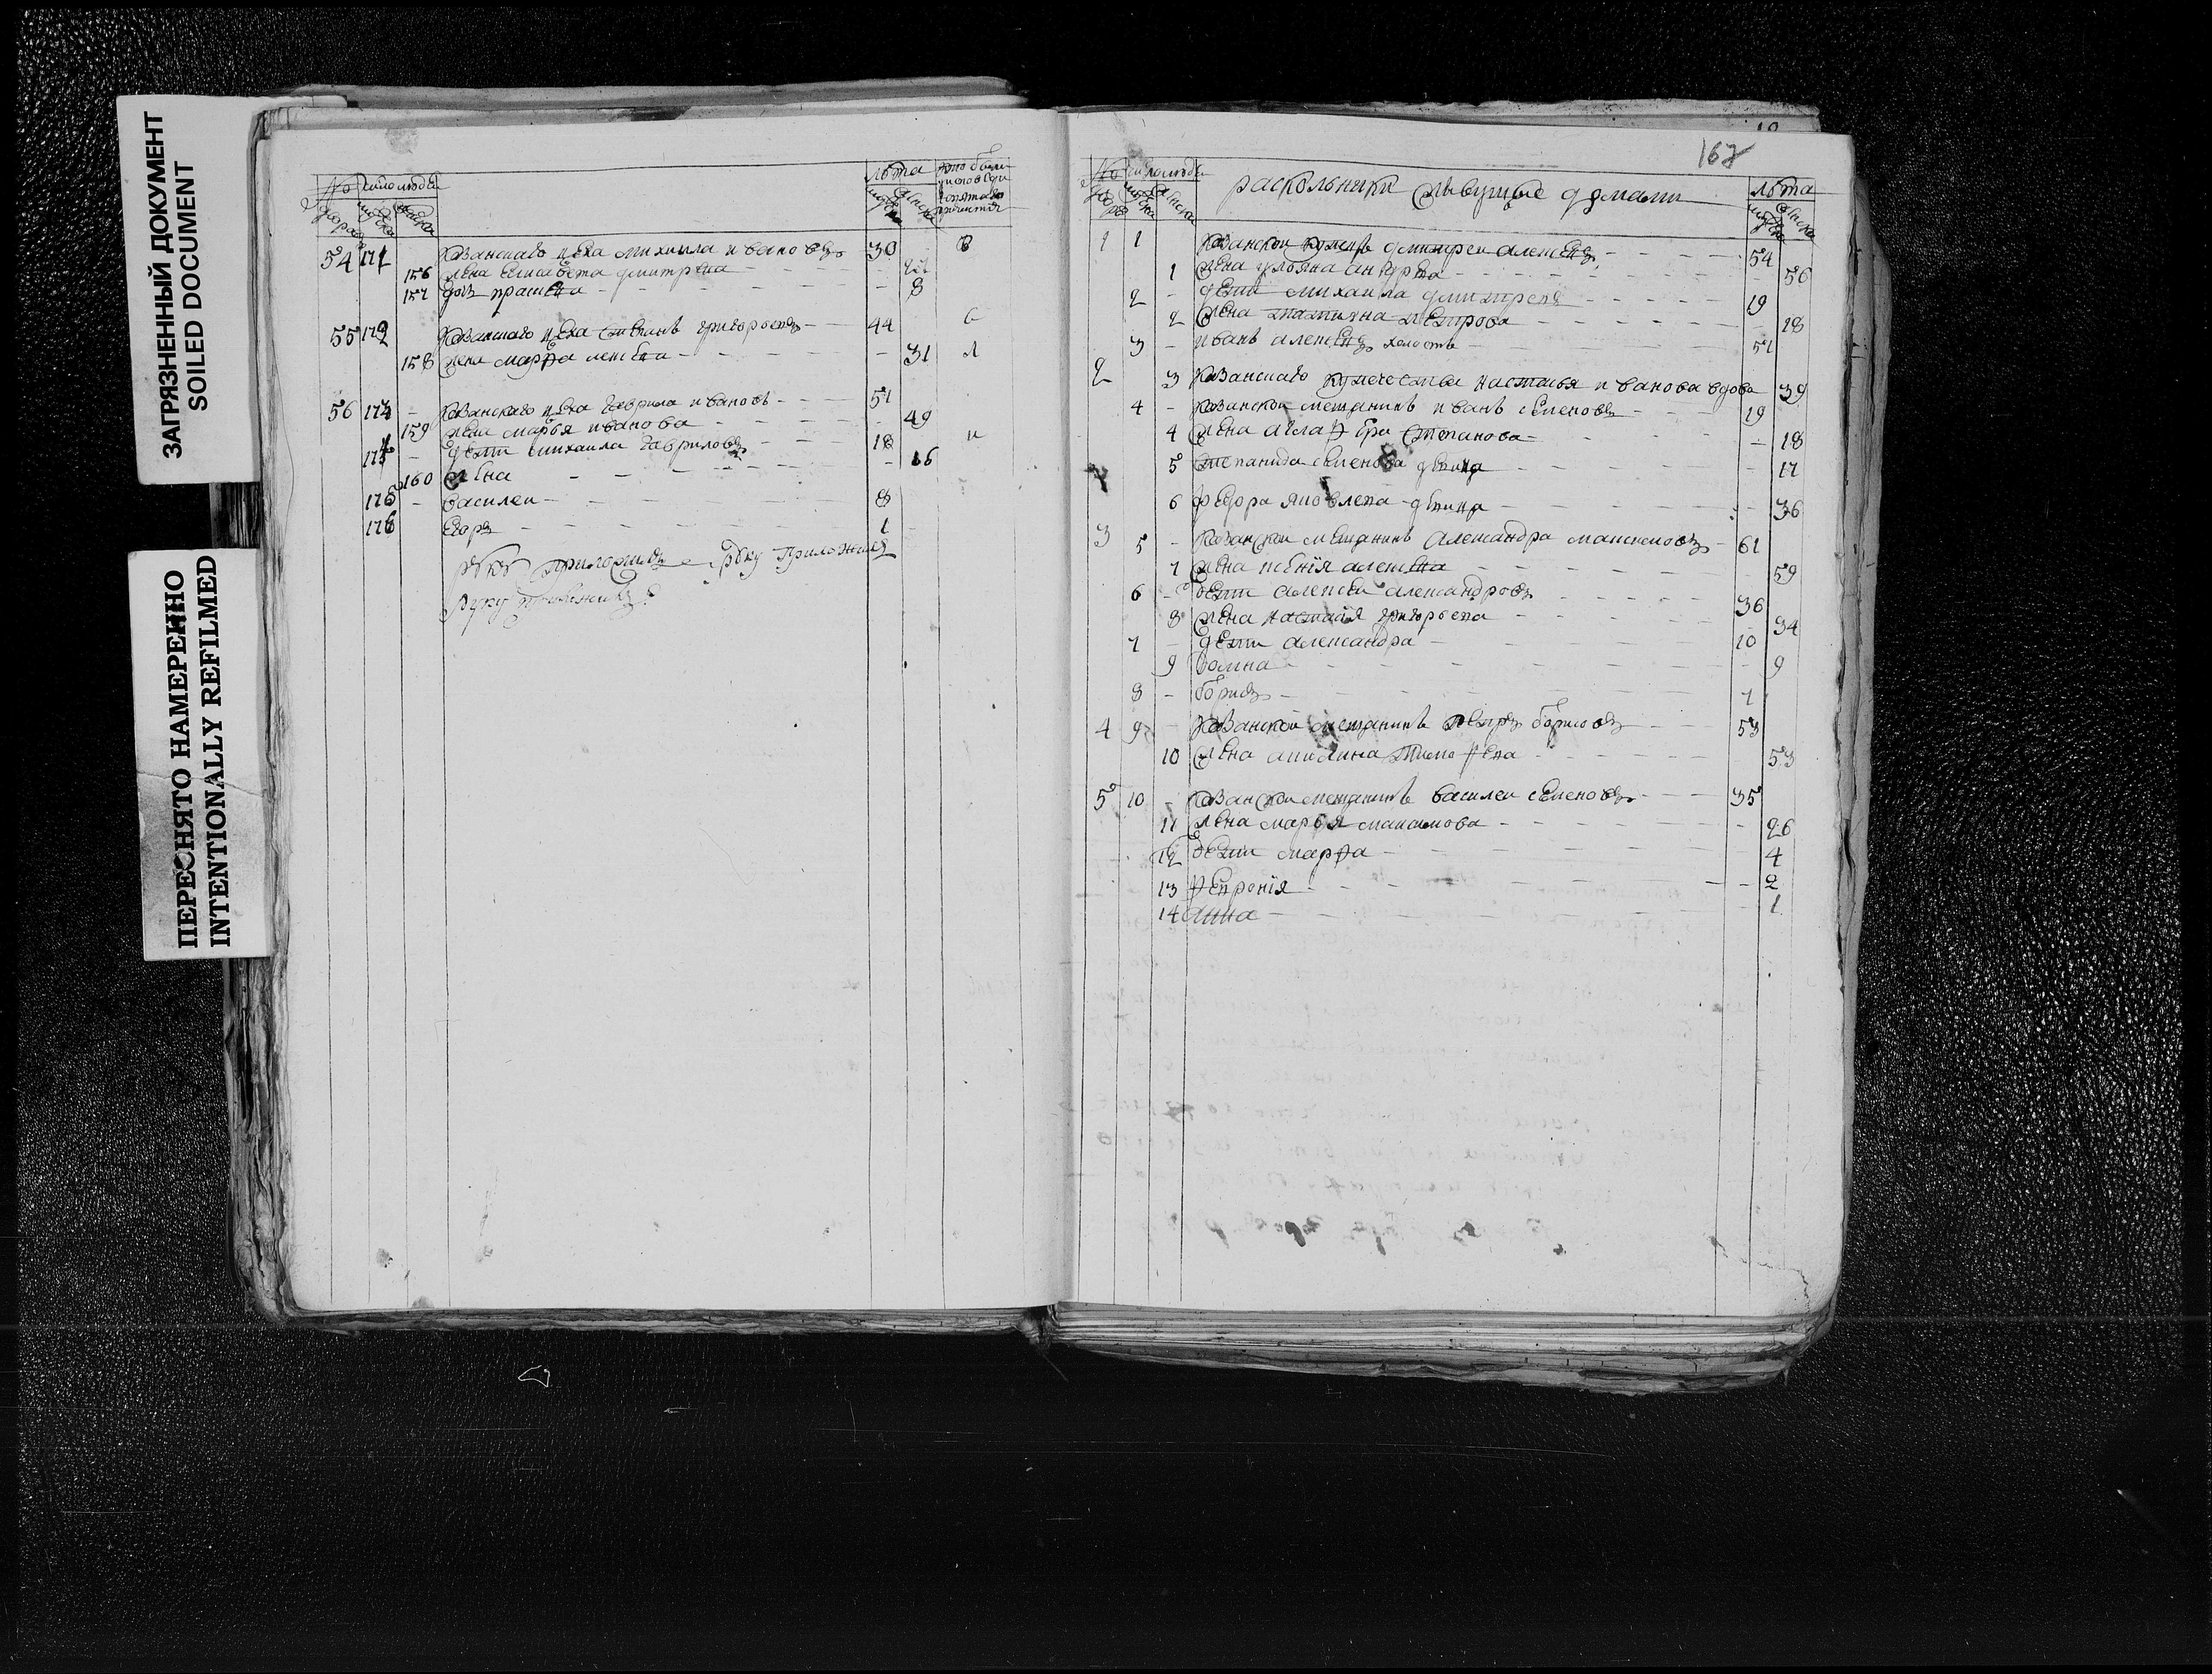 ЗАГРЯЗНЕННЫЙ ДОКУМЕНТ
SOILED DOCUMENT
ПЕРЕСНЯТО НАМЕРЕННО
INTENTIONALLY REFILMED
№ число людей лѣта
двора мужска женска мужска женска
54 171 Казанскаго цеха михаила ивановъ 30 В
156 жена Елисавета дмитрева
157 дочь 8
55 172 Казанскаго цеха григорьевъ 44
158 жена марфа 31
56 173 Казанскаго цеха гаврила ивановъ 51
159 жена марья иванова 49
174 дети михаила гавриловъ 18
160 16
175 василеи 8
176 Егоръ 1
руку приложилъ
руку
167
№ число людей раскольники живущие домами лѣта
двора мужска женска мужска женска
1 1 Казанской купецъ дмитреи алексевъ 54
1 жена ульяна 56
2 дети михаила дмитревъ 19
2 жена татияна петрова 18
3 иванъ алексевъ холостъ 51
2 3 Казанскаго купечества настасья иванова вдова 39
4 Казанской мещанинъ иванъ семеновъ 19
4 жена степанова 18
5 степанида семенова девица 17
6 федора яковлева девица 36
3 5 Казанской мещанинъ александра максимовъ 61
7 жена алексева 59
6 дети алексеи александровъ 36
8 жена настасья григорьева 34
7 дети александра 10
9 9
8 борисъ 7
4 9 Казанской мещанинъ петръ борисовъ 53
10 жена акилина тимофева 53
5 10 Казанской мещанинъ василеи семеновъ 35
11 жена марья максимова 26
12 дети марфа 4
13 февронїя 2
14 анна 1